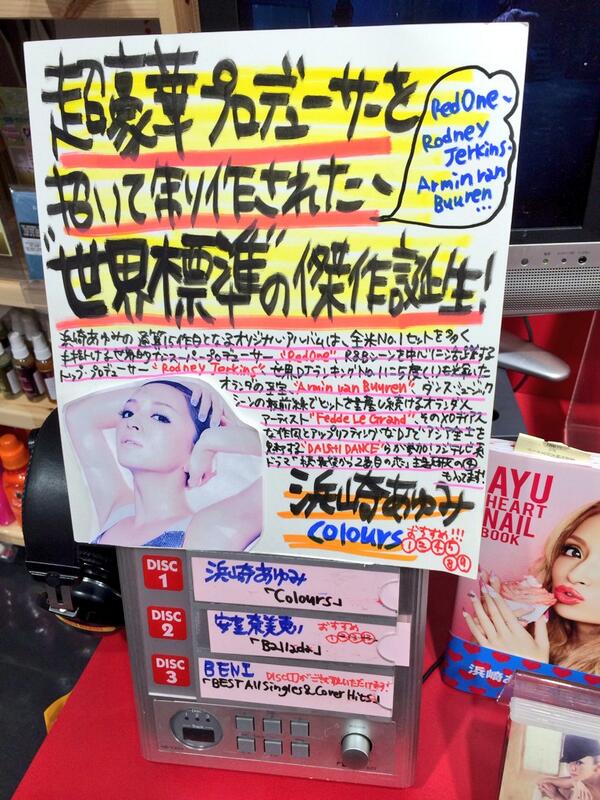 超豪華プロデューサーを
招いて作り作された、
"世界標準"の傑作誕生!
RedOne、
Rodney
Jerkins、
Armin van
Buuren
...
浜崎あゆみの通算15作目となるオリジナルアルバムは、全米No.1ヒットを多く
手掛ける世界的なスーパープロデューサー "RedOne"、R&Bシーンを中心に活躍する
トップ・プロデューサー "Rodney Jerkins"、世界DJランキングNo.1に5度(!)も輝いた
オランダの至宝 "Armin van Buuren"、ダンス・ミュージック
シーンの最前線でヒットを量産し続けるオランダ人
アーティスト "Fedde Le Grand"、そのメロディアス
な作風とアップリフティングなDJで、アジア全土を
"DAISHI DANCE"らが参加!フジテレビ系
ドラマ「続・最後から2番目の恋」主題歌の④
も入ってます!
浜崎あゆみ
Colours
おすすめ!!!
①②④⑤
⑧⑨
DISC
1
浜崎あゆみ
「Colours」
DISC
2
安室奈美恵
おすすめ
「Ballada」
DISC
3
BENI
「BEST All Singles & Cover Hits」
AYU
HEART
NAIL
BOOK
浜崎